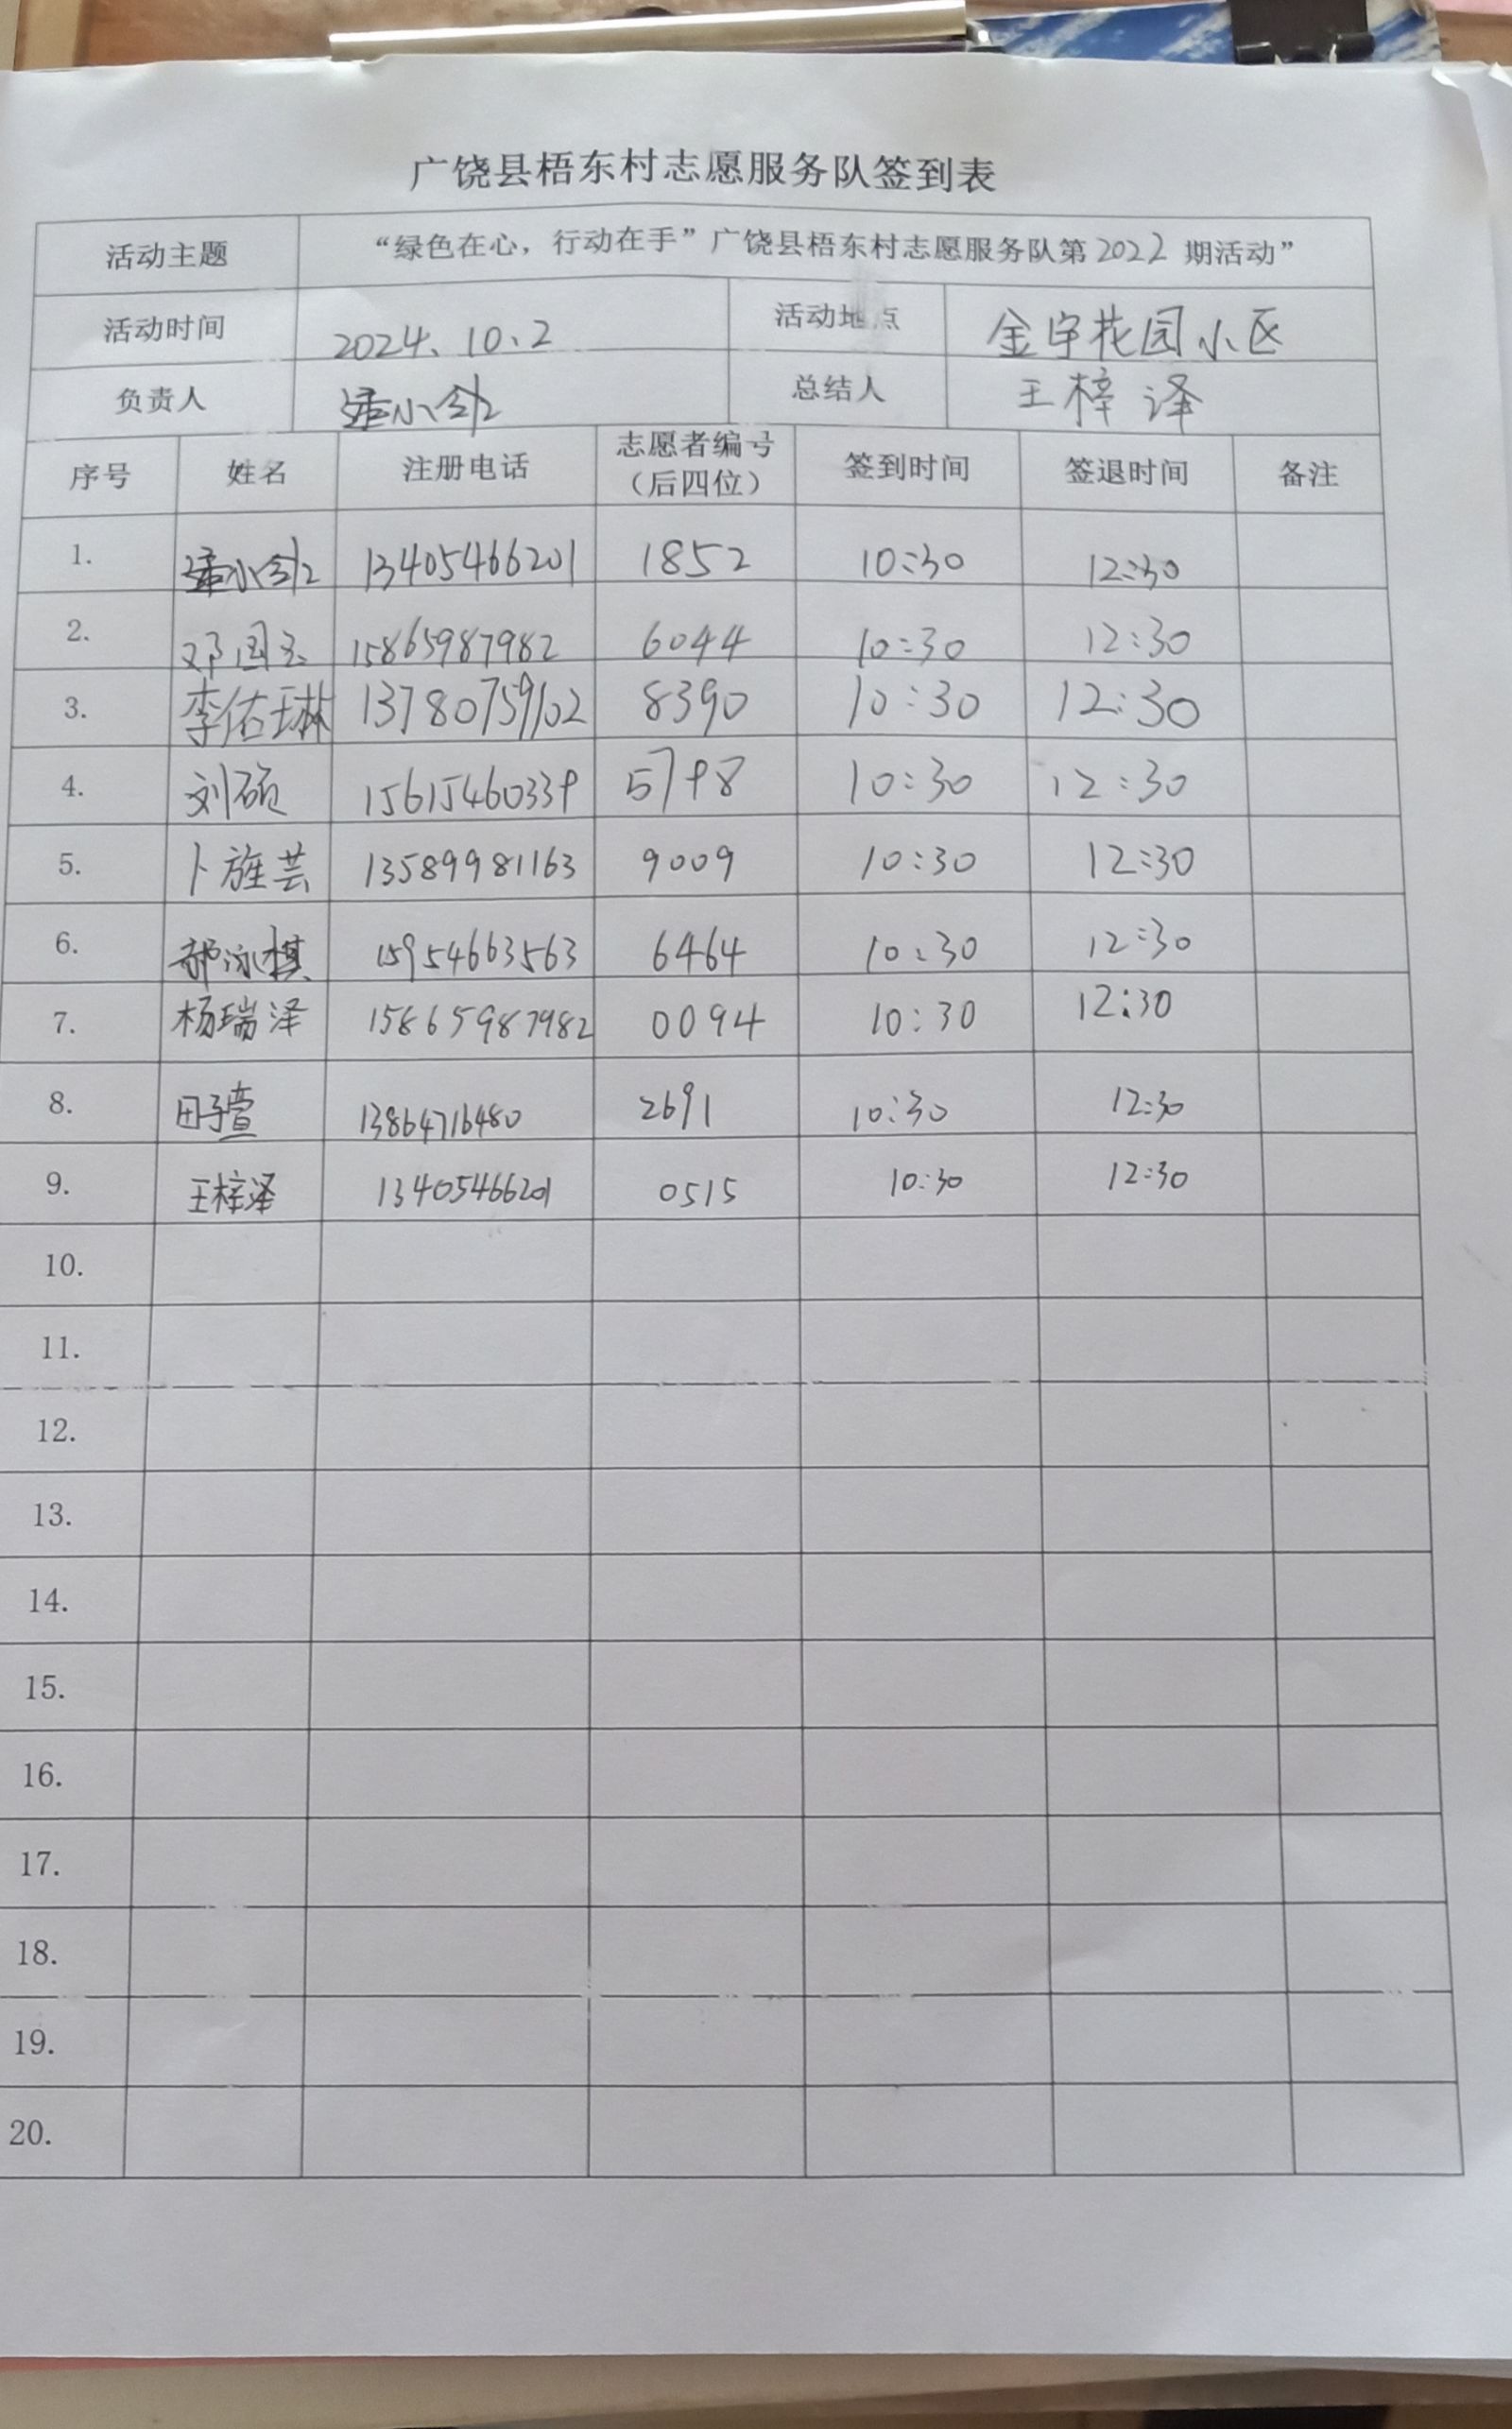 广饶县梧东村志愿服务队签到表
活动主题 “绿色在心，行动在手”广饶县梧东村志愿服务队第2022期活动”
活动时间 2024.10.2 活动地点 金宇花园小区
负责人 总结人 王梓泽
序号 姓名 注册电话 志愿者编号（后四位） 签到时间 签退时间 备注
1. 13405466201 1852 10:30 12:30
2. 邓国玉 15865987982 6044 10:30 12:30
3. 李佑琳 13780759102 8390 10:30 12:30
4. 刘硕 15615460339 5798 10:30 12:30
5. 卜旌芸 13589981163 9009 10:30 12:30
6. 郝泳棋 15954663563 6464 10:30 12:30
7. 杨瑞泽 15865987982 0094 10:30 12:30
8. 田子萱 13864716480 2691 10:30 12:30
9. 王梓泽 13405466201 0515 10:30 12:30
10.
11.
12.
13.
14.
15.
16.
17.
18.
19.
20.